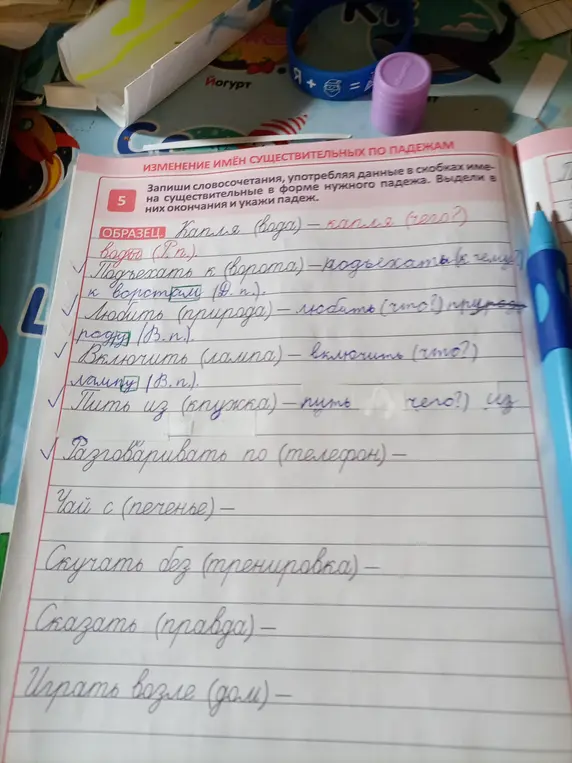 Йогурт
ИЗМЕНЕНИЕ ИМЁН СУЩЕСТВИТЕЛЬНЫХ ПО ПАДЕЖАМ
5
Запиши словосочетания, употребляя данные в скобках име-
на существительные в форме нужного падежа. Выдели в
них окончания и укажи падеж.
ОБРАЗЕЦ Капля (вода) – капля (чего?)
воды (Р.п.)
Подъехать к (ворота) – подъехать (к чему?)
к воротам (Д.п.).
Любить (природа) – любить (что?)
роду (В.п.).
Включить (лампа) – включить (что?)
лампу (В.п.).
Пить из (кружка) – пить чего?) из
Разговаривать по (телефон) –
Чай с (печенье) –
Скучать без (тренировка) –
Сказать (правда) –
Играть возле (дом) –